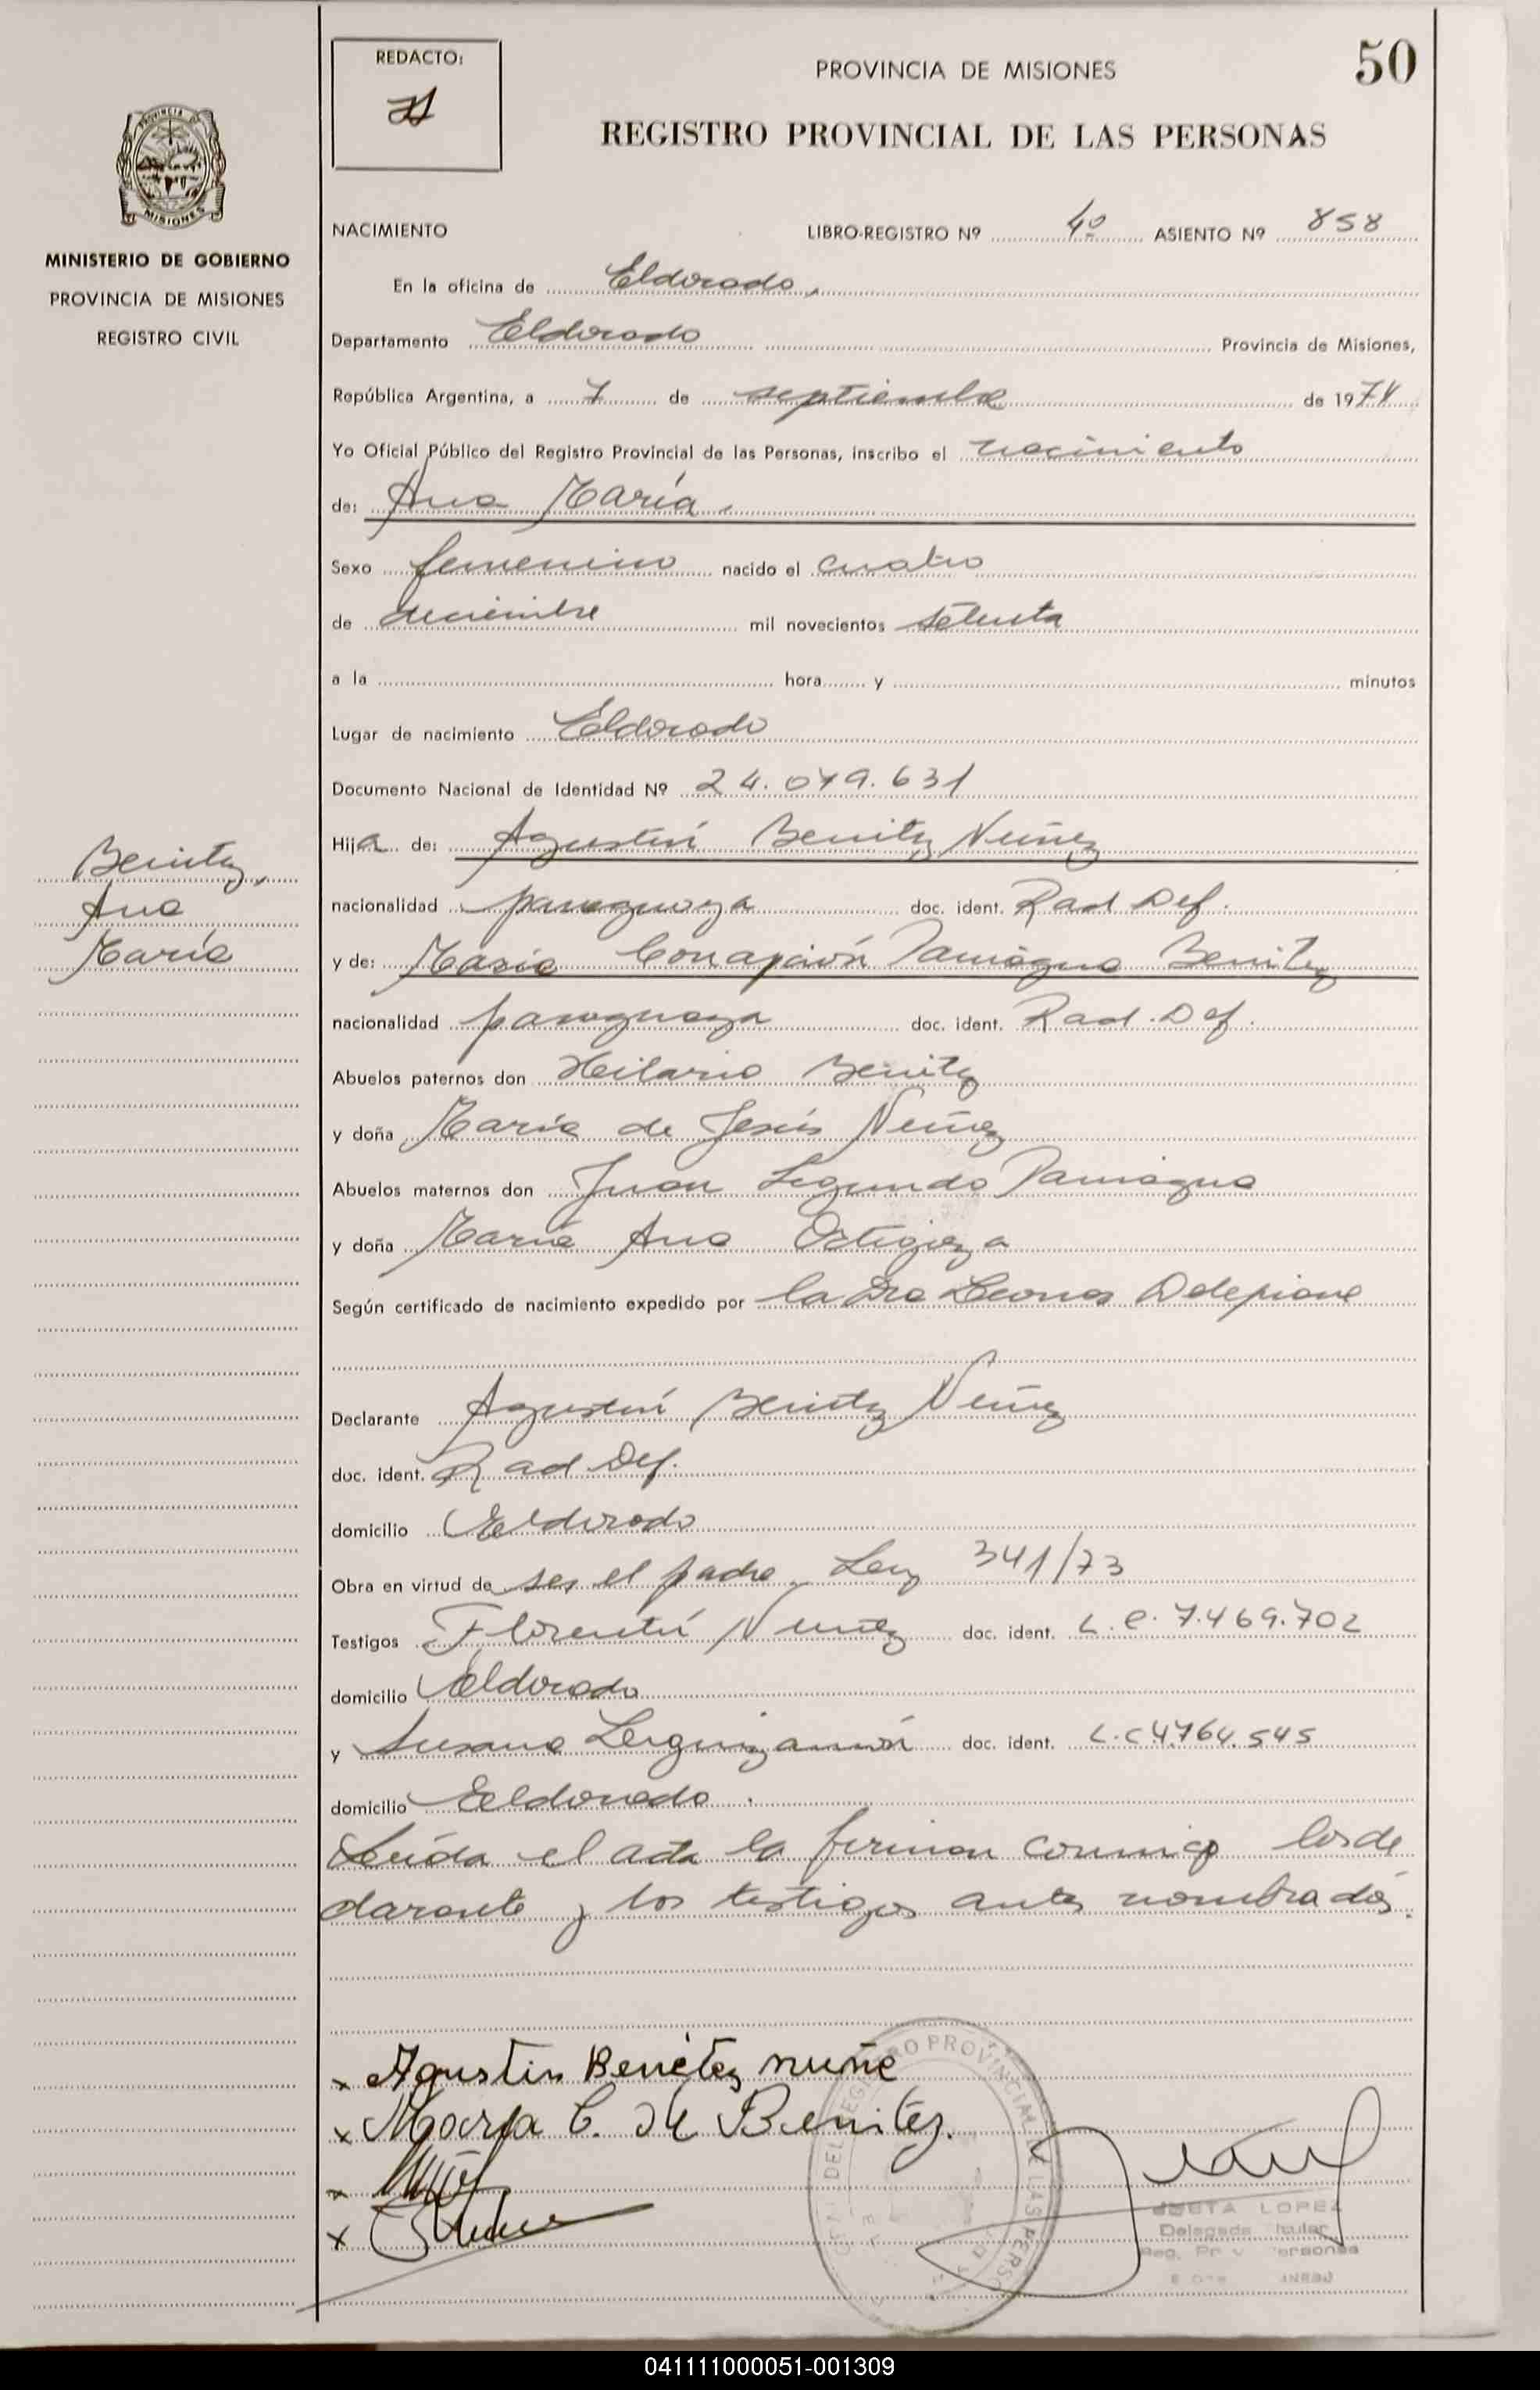 REDACTO:
PROVINCIA DE MISIONES
50
REGISTRO PROVINCIAL DE LAS PERSONAS
PROVINCIA
MISIONES
MINISTERIO DE GOBIERNO
PROVINCIA DE MISIONES
REGISTRO CIVIL
NACIMIENTO LIBRO-REGISTRO Nº 4º ASIENTO Nº 858
En la oficina de Eldorado,
Departamento Eldorado Provincia de Misiones,
República Argentina, a 7 de septiembre de 1974
Yo Oficial Público del Registro Provincial de las Personas, inscribo el nacimiento
de: Ana María.
Sexo femenino nacido el cuatro
de diciembre mil novecientos setenta
a la hora y minutos
Lugar de nacimiento Eldorado
Documento Nacional de Identidad Nº 24.079.631
Hija de: Agustín Benitez Nuñez
nacionalidad paraguaya doc. ident. Rad Def.
y de: María Concepción Paniagua Benitez
nacionalidad paraguaya doc. ident. Rad. Def.
Abuelos paternos don Hilario Benitez
y doña María de Jesús Nuñez
Abuelos maternos don Juan Segundo Paniagua
y doña María Ana Ortigoza
Según certificado de nacimiento expedido por la Dra Leonor Delepiane
Declarante Agustín Benitez Nuñez
doc. ident. Rad Def.
domicilio Eldorado
Obra en virtud de ser el padre. Ley 341/73
Testigos Florentín Nuñez doc. ident. L.E. 7.469.702
domicilio Eldorado
y Susana Leguizamón doc. ident. L.C 4.764.545
domicilio Eldorado.
Leída el acta la firman conmigo los de
clarante y los testigos antes nombrados.
Benitez,
Ana
María
x Agustin Benétez nuñe
x María C. de Benitez.
x
x
REGISTRO PROVINCIAL DE LAS PERSO
LOPEZ
Delegada Titular
041111000051-001309